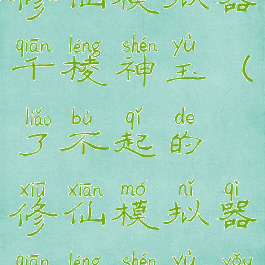 修仙模拟器
qiān léng shén yù
千棱神玉（
liǎo bù qǐ de
了不起的
xiū xiān mó nǐ qì
修仙模拟器
qiān léng shén yù yǒu